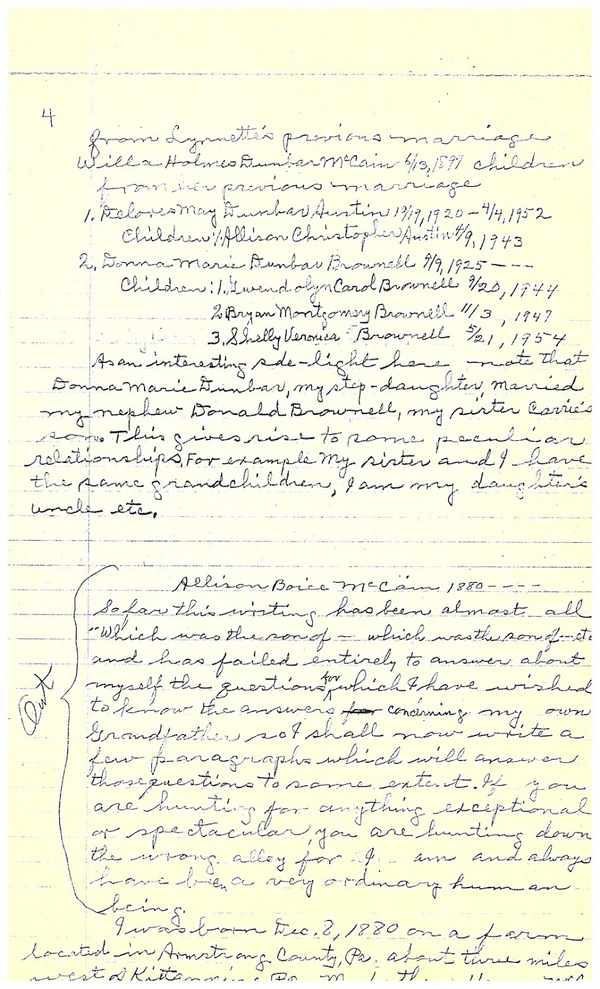 4
from Lynnette's previous marriage
Willa Holmes Dunbar McCain 6/13, 1897 children
from her previous marriage
1. Delores May Dunbar Austin 1920 - 4/4, 1952
Children: 1. Allison Christopher Austin 4/9, 1943
2. Donna Marie Dunbar Brownell 9/9, 1925 - - -
Children: 1. Gwendolyn Carol Brownell 9/20, 1944
2. Bryan Montgomery Brownell 11/3, 1947
3. Shelly Veronica Brownell 5/21, 1954
As an interesting side-light here note that
Donna Marie Dunbar, my step-daughter, married
my nephew Donald Brownell, my sister Carrie's
son. This gives rise to some peculiar
relationships, For example My sister and I have
the same grandchildren, I am my daughter's
uncle etc.
Allison Boice McCain 1880 - - - -
So far this writing has been almost all
"Which was the son of - which was the son of - etc
and has failed entirely to answer about
myself the questions for which I have wished
to know the answers for concerning my own
Out
Grandfather so I shall now write a
few paragraphs which will answer
those questions to some extent. If you
are hunting for anything exceptional
or spectacular, you are hunting down
the wrong alley for I am and always
have been a very ordinary human
being.
I was born Dec. 8, 1880 on a farm
located in Armstrong County, Pa. about three miles
west of Kittanning Pa.